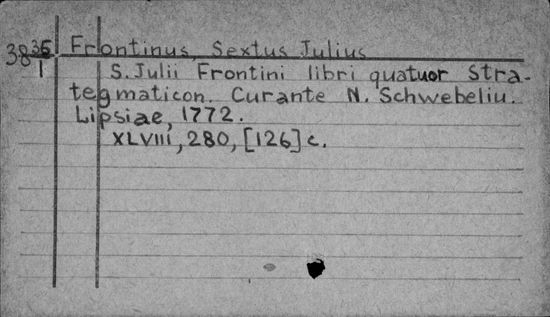 3835 Frontinus, Sextus Julius
1 S. Julii Frontini libri quatuor Stra-
tegmaticon. Curante N. Schwebeliu.
Lipsiae, 1772.
XLVIII, 280, [126] c.